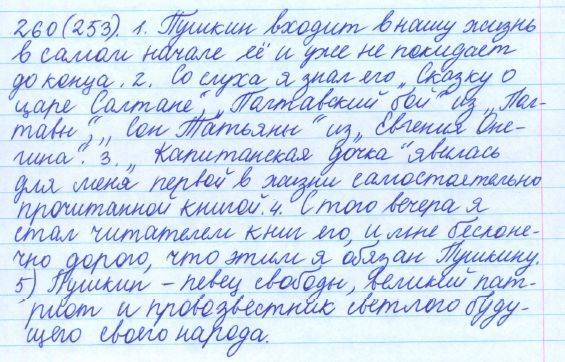 260(253). 1. Пушкин входит в нашу жизнь
в самом начале её и уже не покидает
до конца. 2. Со слуха я знал его „Сказку о
царе Салтане", „Полтавский бой" из „Пол-
тавы", „Сон Татьяны" из „Евгения Оне-
гина". 3. „Капитанская дочка" явилась
для меня первой в жизни самостоятельно
прочитанной книгой. 4. С того вечера я
стал читателем книг его, и мне бесконе-
чно дорого, что этим я обязан Пушкину.
5) Пушкин – певец свободы, великий пат-
риот и провозвестник светлого буду-
щего своего народа.